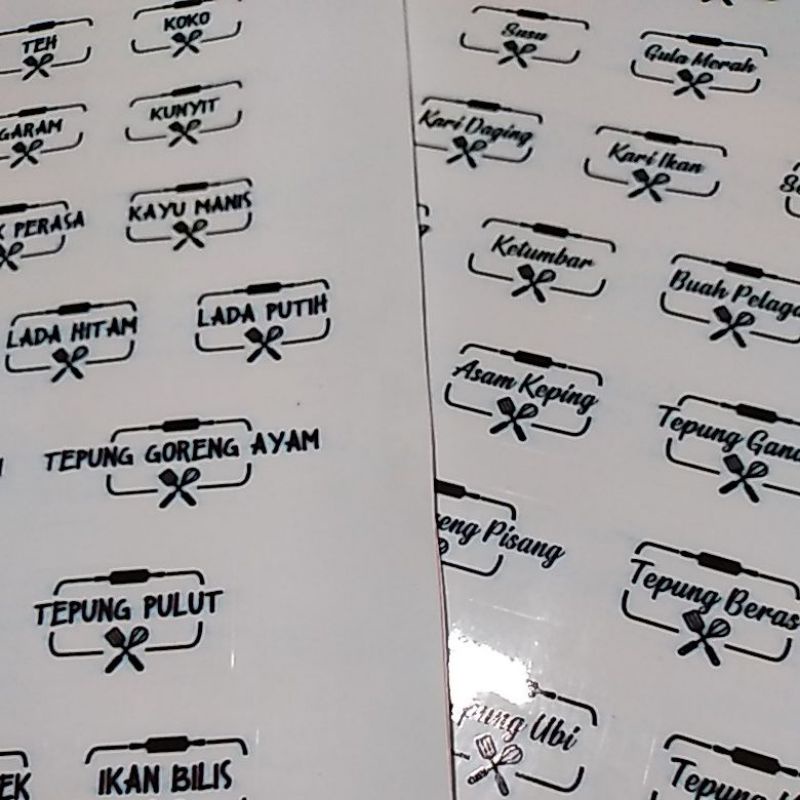 TEH
KOKO
GARAM
KUNYIT
PERASA
KAYU MANIS
LADA HITAM
LADA PUTIH
TEPUNG GORENG AYAM
TEPUNG PULUT
IKAN BILIS
Susu
Gula Merah
Kari Daging
Kari Ikan
Ketumbar
Buah Pelaga
Asam Keping
Tepung
Pisang
Tepung Beras
Ubi
Tepung